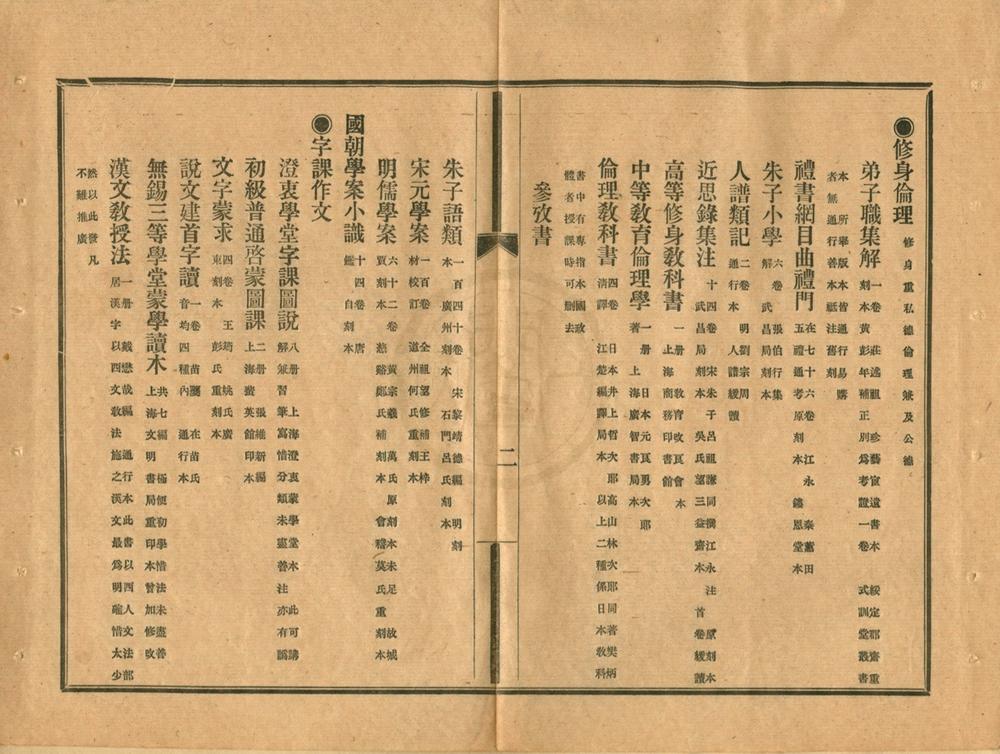 ●修身倫理 修身重私德倫理兼及公德
弟子職集解 一卷 莊述祖 珍藝宧遺書本 綏定郡齋重刻本 黃彭年補正別為考證一卷 式訓堂叢書本 所舉版本皆通行易購者無通行善本祗注舊刻
禮書綱目曲禮門 在七十六卷 江永 秦蕙田五禮通考原刻本 鏤恩堂本
朱子小學 六卷 張伯行集解 武昌局刻本
人譜類記 二卷 明劉宗周 通行本 人譜緩讀
近思錄集注 十四卷 宋朱子呂祖謙同撰江永注 原刻本 武昌局刻本 吳氏望三益齋本 首卷緩讀
高等修身教科書 一册 教育改良會本 上海商務印書館
中等教育倫理學 一册 日本元良勇次郎著 上海廣智書局本
倫理教科書 四卷 日本井上哲次郎高山林次郎同著樊炳清譯 江楚編譯局本 以上二種係日本教科書中有專指本國政體者授課時可刪去
參攷書
二
朱子語類 一百四十卷 宋黎靖德編 明刻本 廣州刻本 石門呂氏刻本
宋元學案 一百卷 全祖望修補王梓材校訂 道州何氏重刻本
明儒學案 六十二卷 黃宗羲 萬氏原刻本未足 故城賈刻本 慈谿鄭氏補刻本 會稽莫氏重刻本
國朝學案小識 十四卷 唐鑑 自刻本
●字課作文
澄衷學堂字課圖說 八册 上海澄衷蒙學堂本 此可講解兼習筆寫惜分類未盡善注亦有譌
初級普通啓蒙圖課 二册 張維新編 上海蜚英館印本
文字蒙求 四卷 王筠 姚氏廣東刻本 彭氏重刻本
說文建首字讀 一卷 苗夔 在苗氏音均四種內 通行本
無錫三等學堂蒙學讀本 共七編 極便初學惜法未盡善 上海文明書局重印本曾加修改
漢文教授法 一册 戴懋哉編 通行本 此書以西人文法部居漢字以西文教法施之漢文最為明確惜太少然以此發凡不難推廣